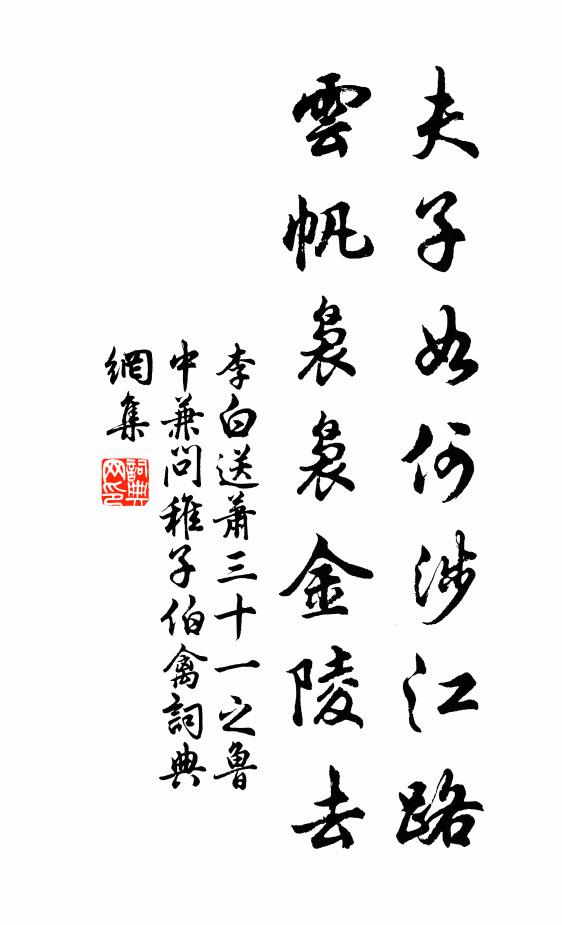 夫子如何涉江路
雲帆裊裊金陵去
李白送蕭三十一之魯
中兼問稚子伯禽詞典
網集
詞典網印